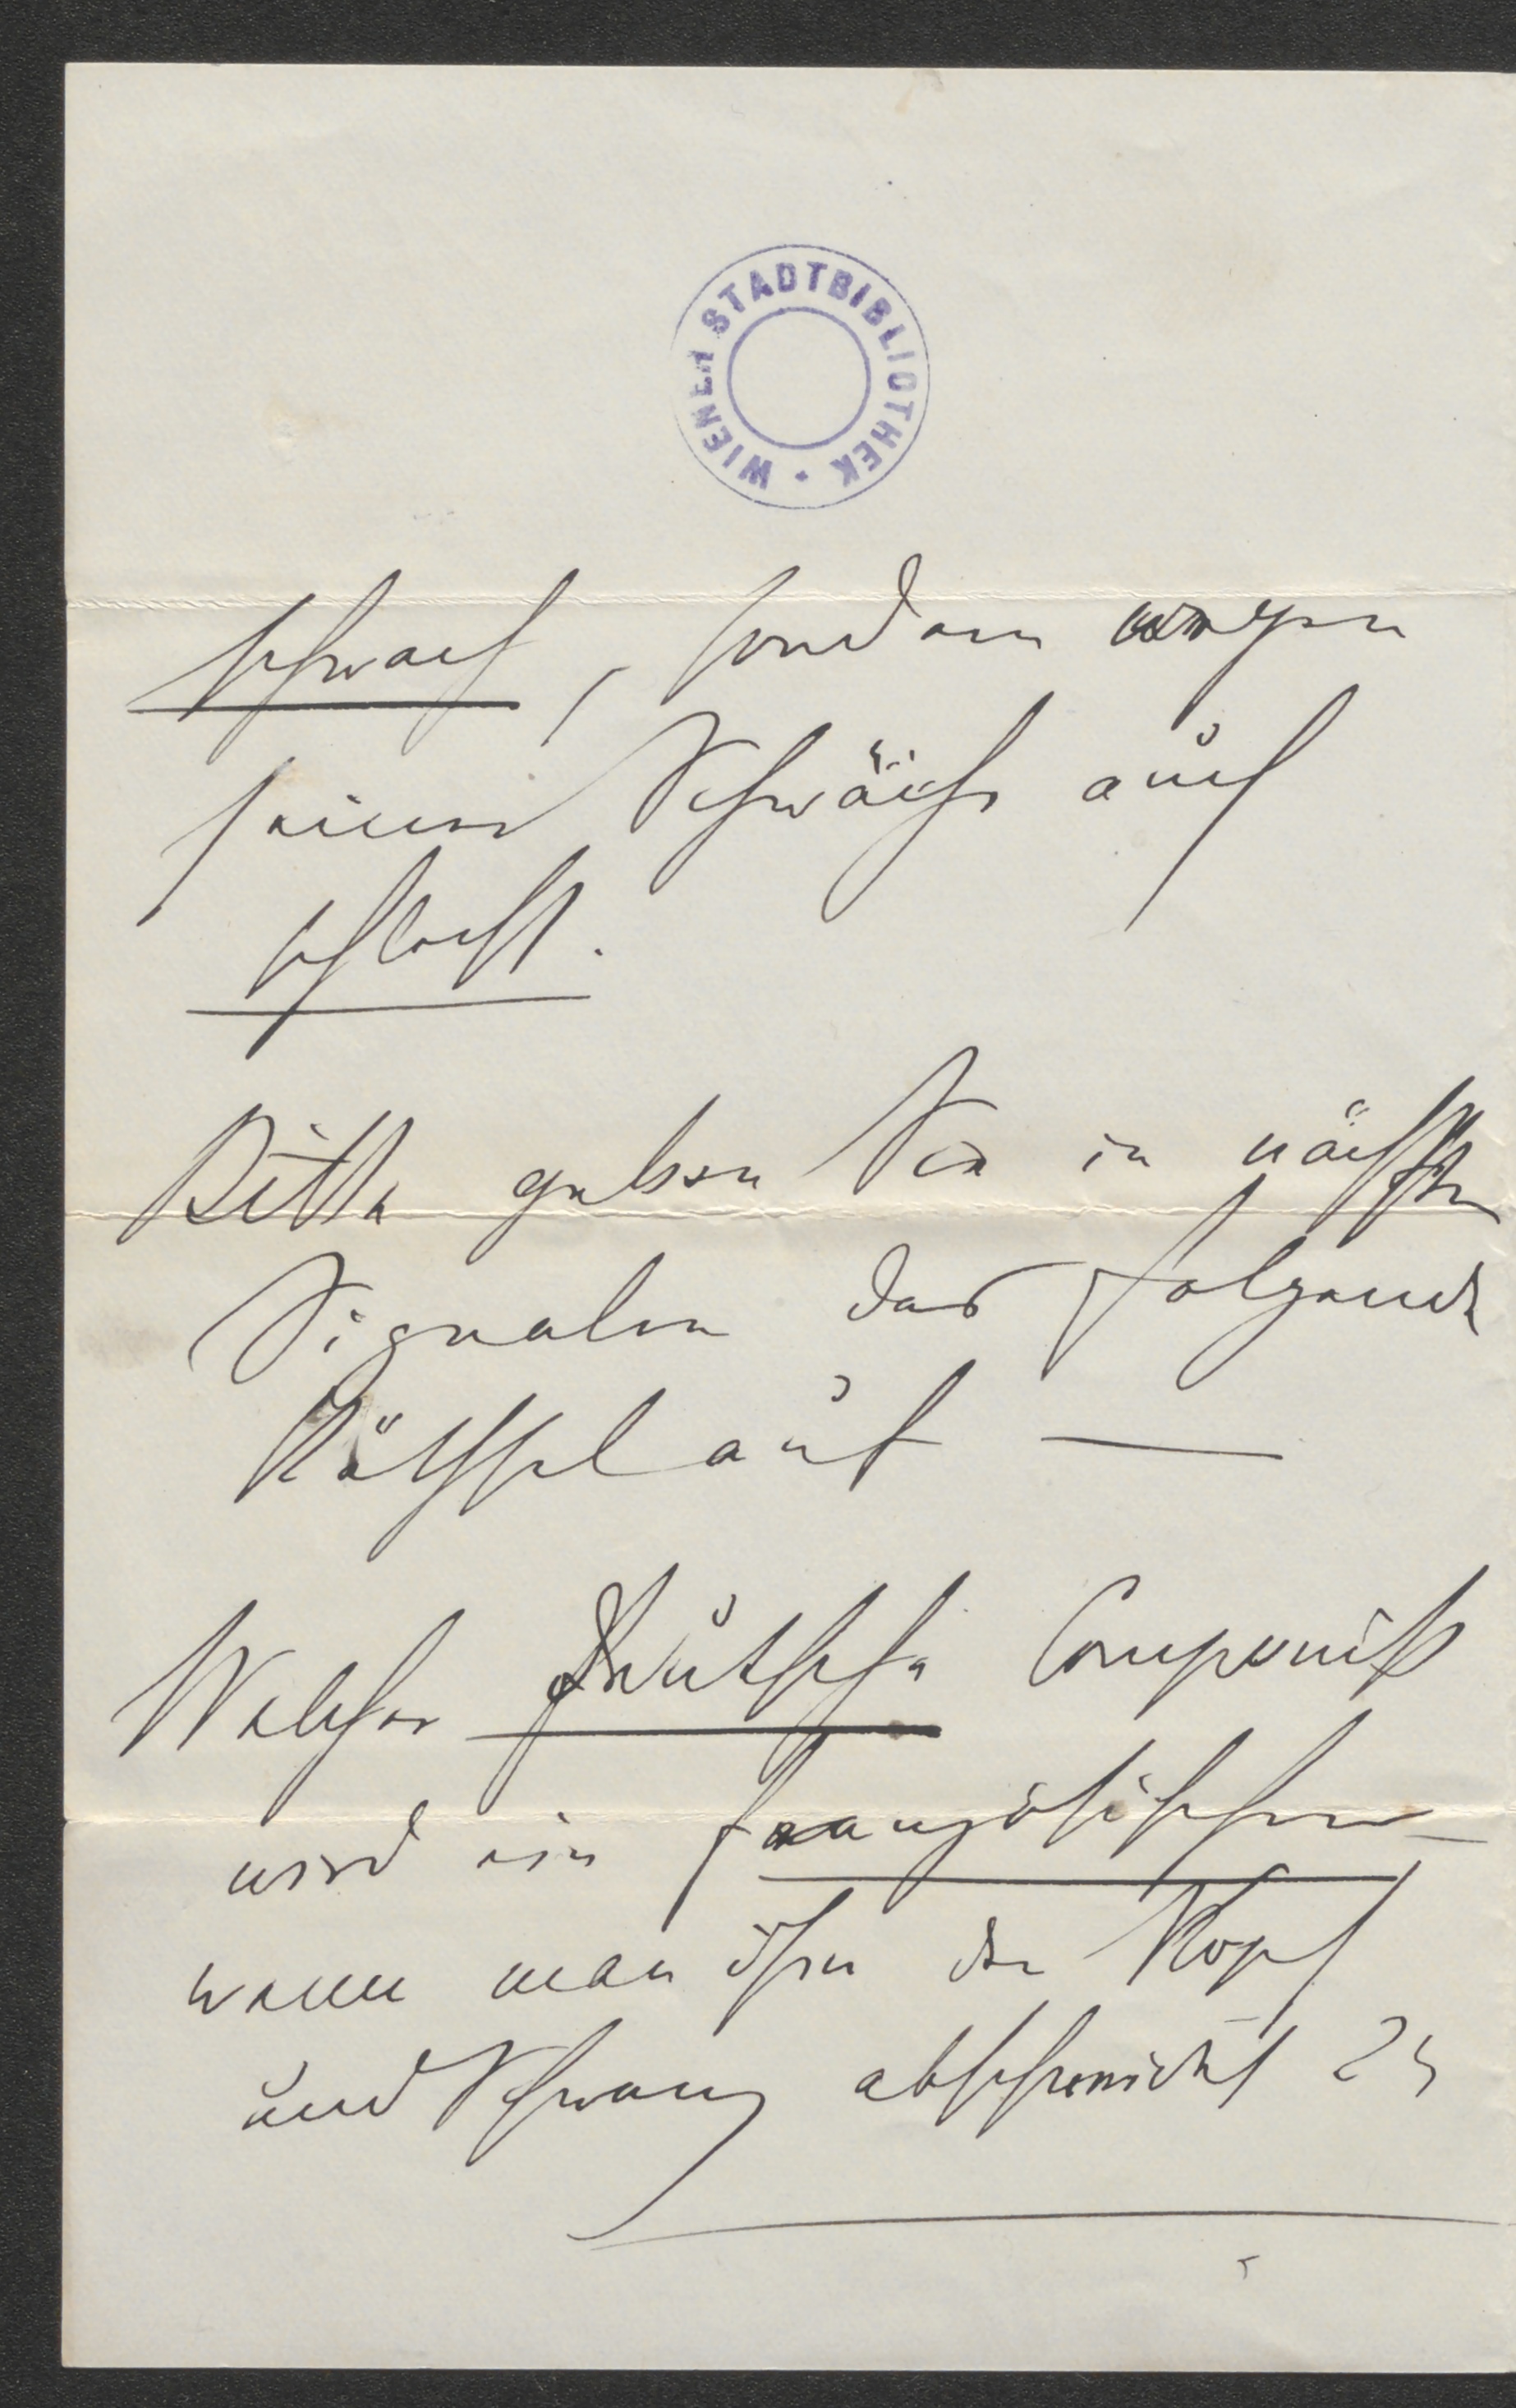 WIENER STADTBIBLIOTHEK
schwach, sondern wegen
seiner Schwäche auch
schlecht.
Bitte geben Sie in nächsten
Signalen das folgende
Räthsel auf —
Welcher deutsche Componist
wird ein französischer
wenn man ihm den Kopf
und Schwanz abschneidet ?